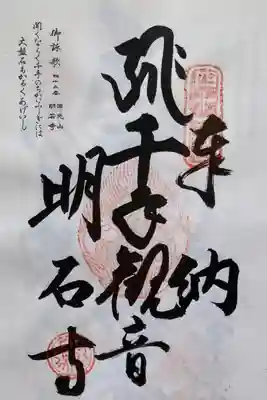 奉納
千手観音
明石寺
御詠歌
四十三番
源光山
明石寺
聞くならく千手のちかひふしぎには
大盤石もかろくあげいし